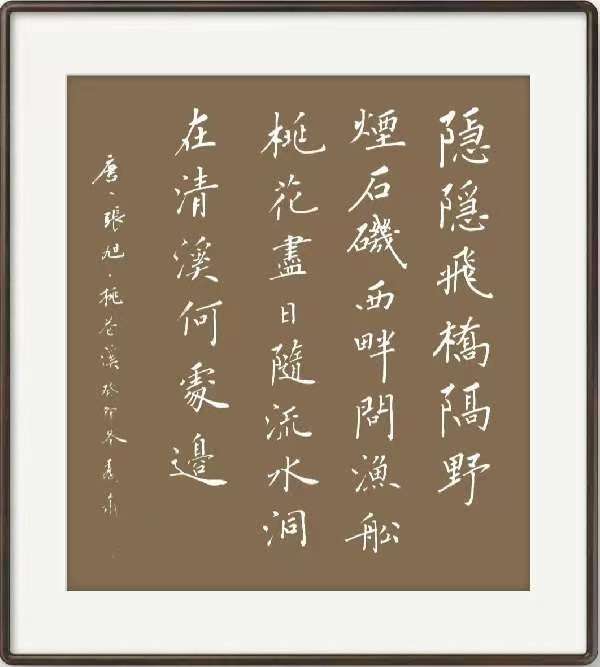 隱隱飛橋隔野
煙石磯西畔問漁船
桃花盡日隨流水洞
在清溪何處邊
唐、張旭、桃花溪癸卯冬